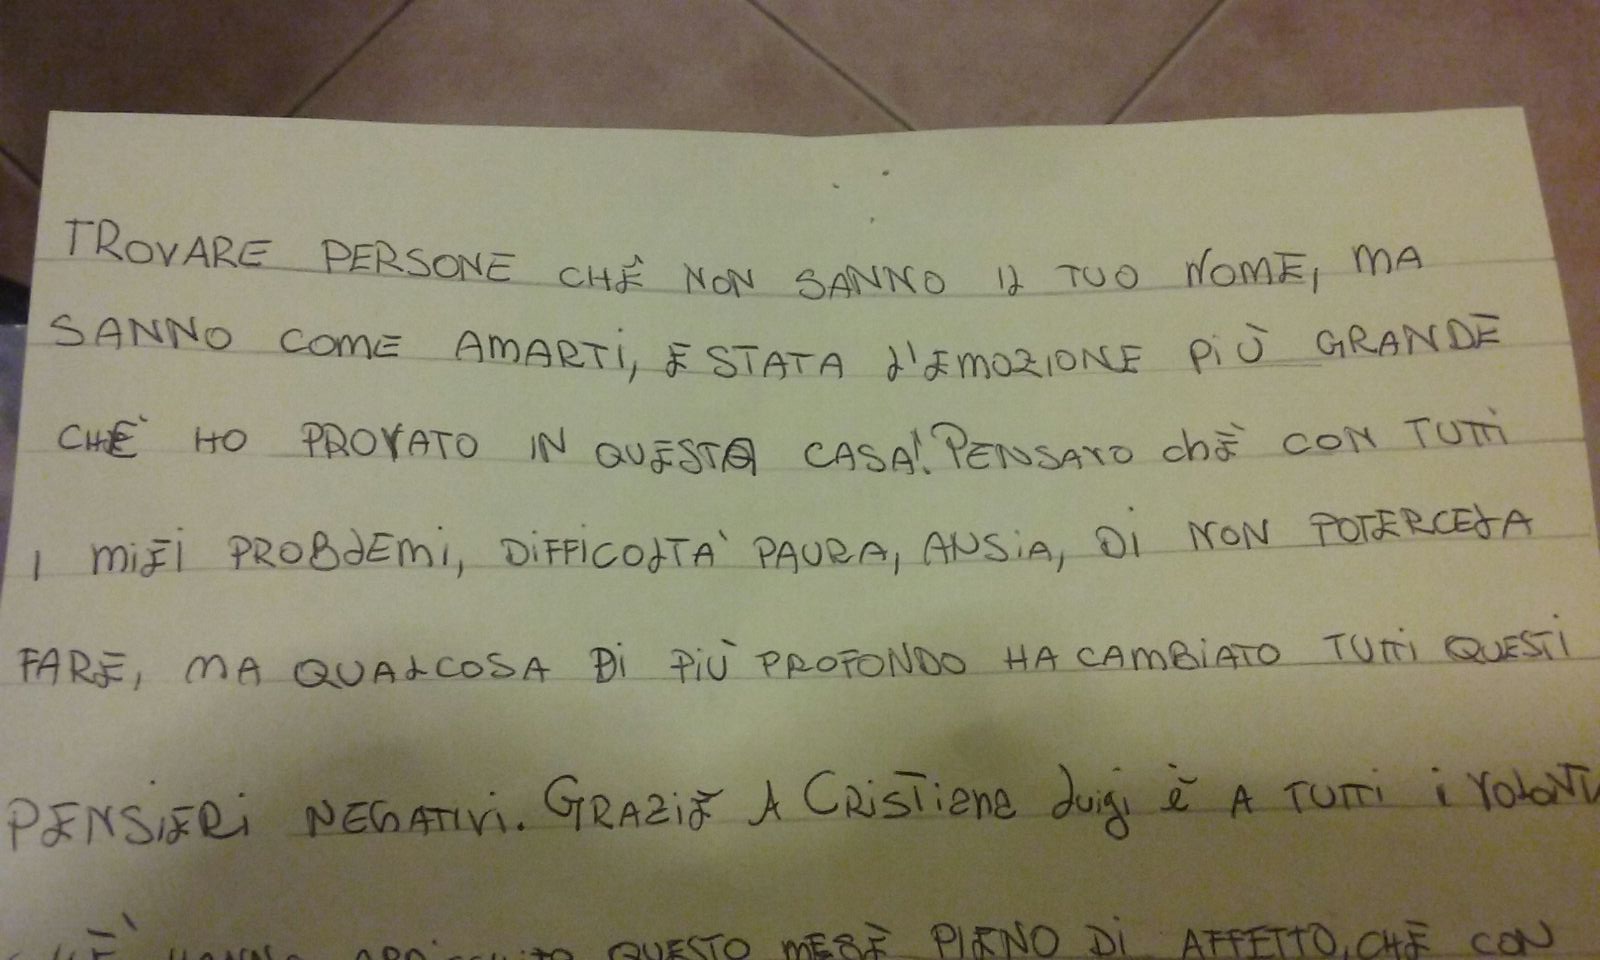 TROVARE PERSONE CHÈ NON SANNO IL TUO NOME, MA
SANNO COME AMARTI, È STATA L'EMOZIONE PIÙ GRANDE
CHÈ HO PROVATO IN QUESTA CASA! PENSAVO chÈ CON TUTTI
I MIEI PROBLEMI, DIFFICOLTA' PAURA, ANSIA, DI NON POTERCELA
FARE, MA QUALCOSA DI PIÙ PROFONDO HA CAMBIATO TUTTI QUESTI
PENSIERI NEGATIVI. GRAZIE A CRISTIANA Luigi è A TUTTI i VOLONT
CHÈ HANNO QUESTO MESE PIENO DI AFFETTO, CHÈ CON